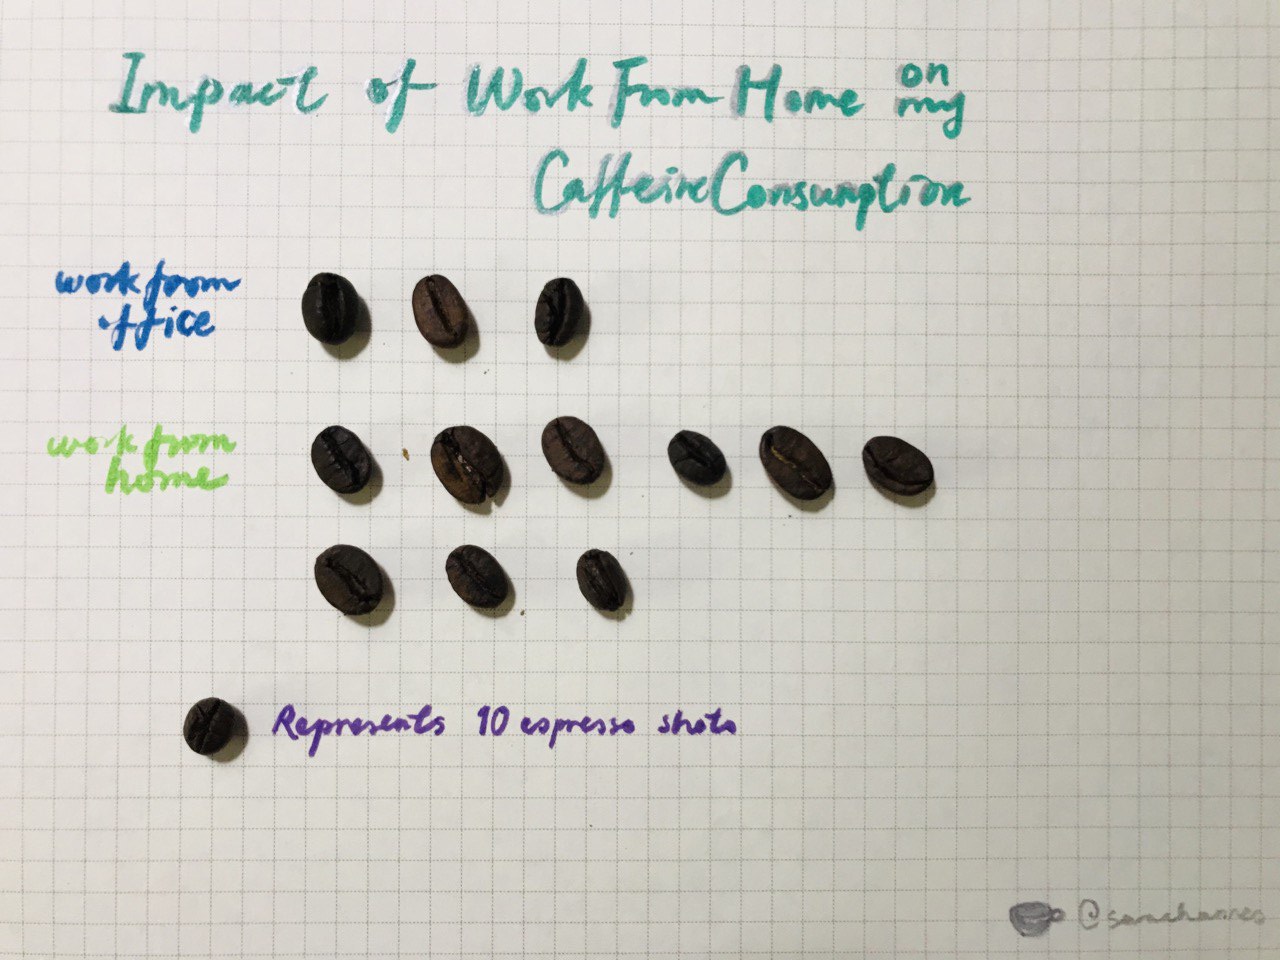 Impact of Work From Home on my
Caffeine Consumption
work from
office
work from
home
Represents 10 espresso shots